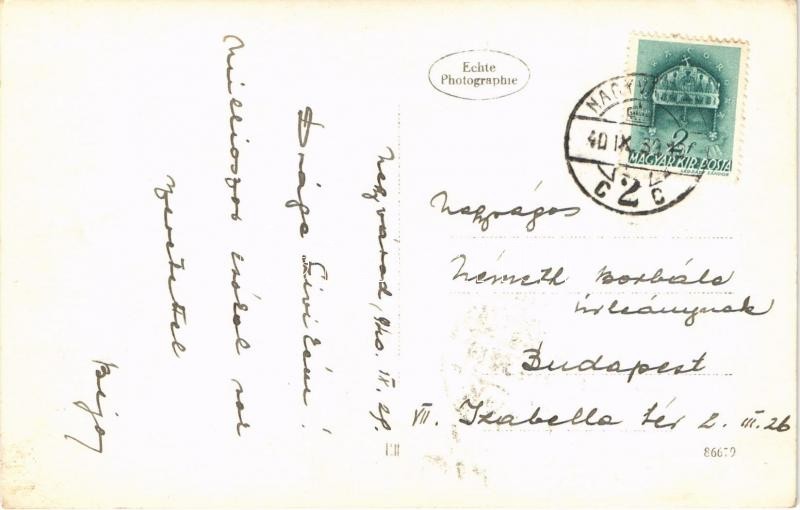 Echte
Photographie
MAGYAR KIR. POSTA
2
40 IX. 30
C 2 C
Nagyvárad, 940. IX. 29.
Drága
Milliószor csókol sok
szeretettel
Nagyságos
Németh Borbála
úrleánynak
Budapest
VII. Izabella tér 2. III. 26
86679